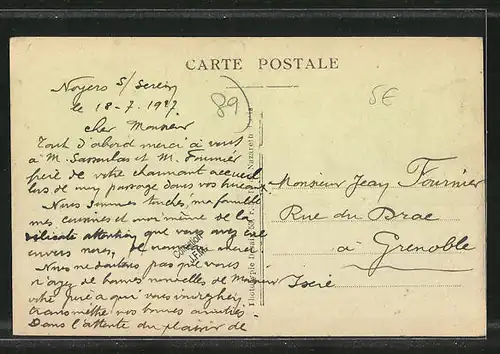 CARTE POSTALE
Noyers s/ Serein
le 18-7-1927
89
5€
cher Monsieur
Tout d'abord merci à vous
à M. et M. Fournier
père de votre charmant accueil
lors de mon passage dans vos bureaux.
Nous sommes touchés, ma famille
mes et moi même de la
délicate attention que vous avez eue
envers nous, de nouveau merci
Nous ne doutons pas que vous
n'ayez de bonnes nouvelles de Monsieur
votre père à qui vous
transmettre vos bonnes amitiés.
Dans l'attente du plaisir de
Collection
Nazareth Paris
Monsieur Jean Fournier
Rue du Drac
à Grenoble
Isère